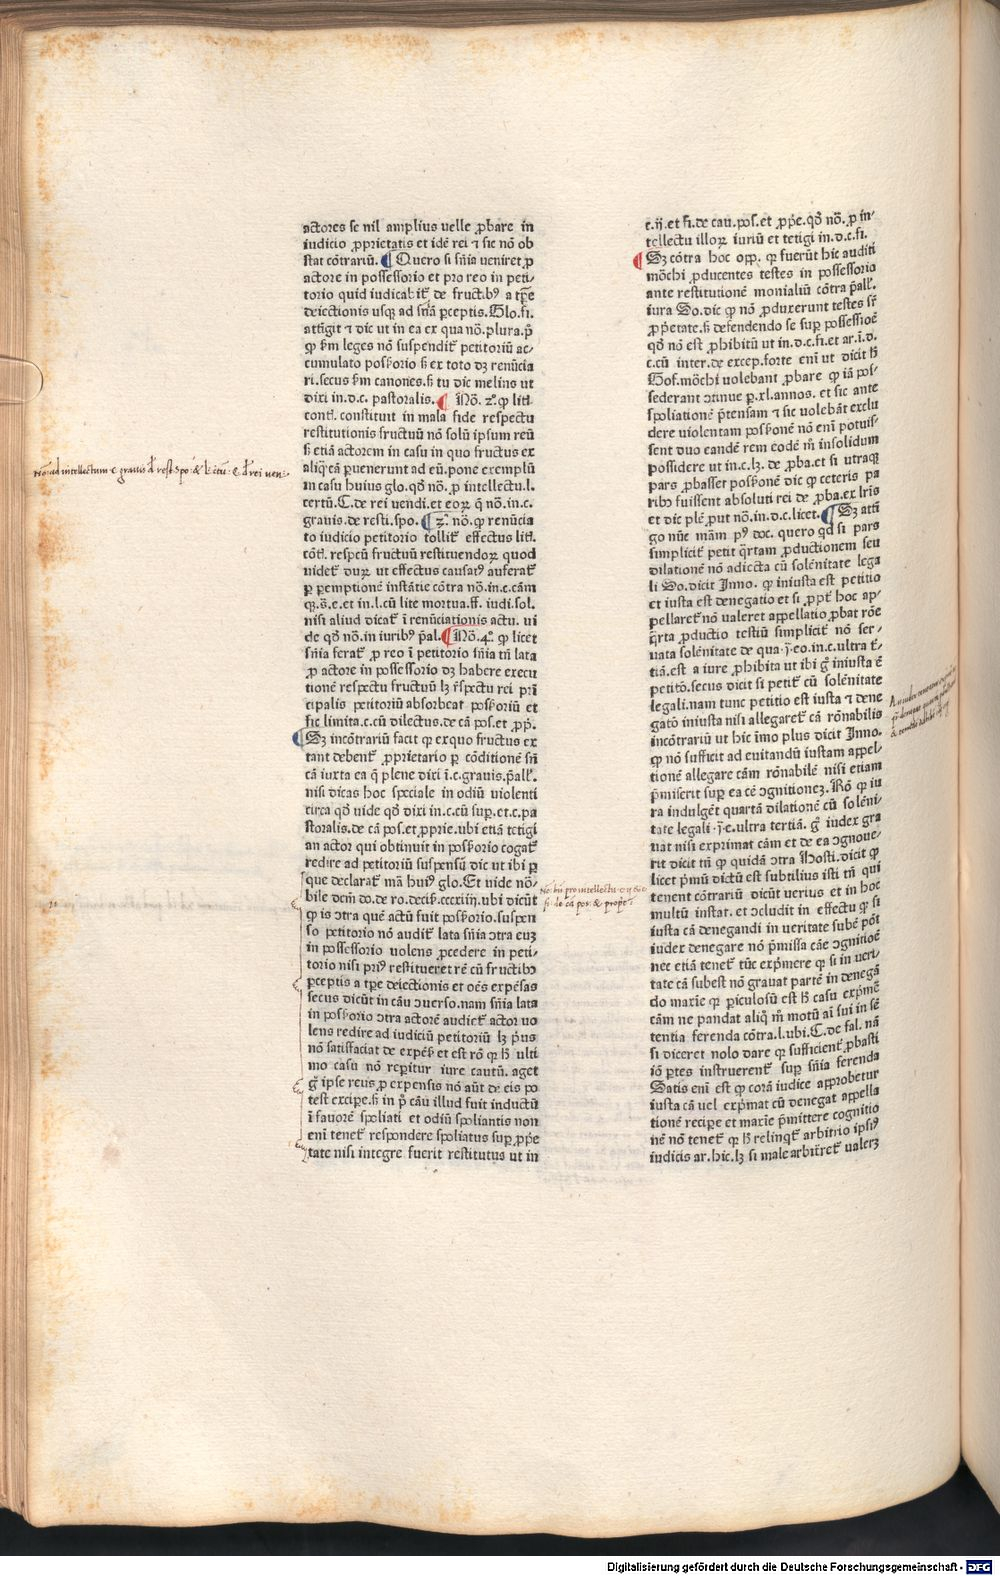 actores se nil amplius uelle ꝓbare in
iudicio ꝓprietatis et idē rei ⁊ sic nō ob
stat cōtrariū. ¶ Quero si sn̄ia ueniret ꝓ
actore in possessorio et pro reo in peti/
torio quid iudicabit᷑ de fructibꝰ a tp̄e
deiectionis usqꝫ ad sn̄iā ꝑceptis. Glo. fi.
attīgit ⁊ dic ut in ea ex qua nō. plura. p̄
ꝙ ẜm leges nō suspendit᷑ petitoriū ac/
cumulato posẜorio ẜ ex toto dꝫ renūcia
ri. secus ẜm canones. ẜ tu dic melius ut
dixi in. d. c. pastoralis. ¶ Nō. 2º. ꝙ liti
cont̄. constituit in mala fide respectu
restitutionis fructuū nō solū ipsum reū
ẜ etiā actorem in casu in quo fructus ex
aliqͣ cā ꝑuenerunt ad eū. pone exemplū
in casu huius glo. qd̄ nō. ꝓ intellectu. l.
certū. C. de rei uendi. et eoꝝ q̄ nō. in. c.
grauis. de resti. spo. ¶ 2º. nō. ꝙ renūcia
to iudicio petitorio tollit᷑ effectus lit̄.
cōt̄. respcū fructuū restituendoꝝ quod
uidet᷑ duꝝ ut effectus causatꝰ auferat᷑
ꝑ ꝑemptionē instātie cōtra nō. in. c. cām
qꝫ. s̄. e. et in. l. cū lite mortua. ff. iudi. sol.
nisi aliud dicat᷑ ī renūciationis actu. ui
de qd̄ nō. in iuribꝰ p̄al. ¶ Nō. 4º. ꝙ licet
sn̄ia ferat᷑ ꝓ reo ī petitorio sn̄ia tn̄ lata
ꝓ actore in possessorio dꝫ habere execu
tionē respectu fructuū lꝫ r̄spectu rei prī
cipalis petitoriū absorbeat posẜoriū et
sic limita. c. cū dilectus. de cā pos. et ꝓp̄.
¶ Sꝫ incōtrariū facit qꝛ exquo fructus ex
tant debent᷑ ꝓprietario ꝑ cōditionē sn̄
cā iuxta ea q̄ plene dixi ī. c. grauis. p̄all̄.
nisi dicas hoc speciale in odiū uiolenti
circa qd̄ uide qd̄ dixi in. c. cū suꝑ. et. c. pa
storalis. de cā pos. et ꝓprie. ubi etiā tetigi
an actor qui obtinuit in posẜorio cogat᷑
redire ad petitoriū suspensū dic ut ibi ꝑ
que declarat᷑ mā huiꝰ glo. Et uide nō/
bile dcm̄ do. de ro. decis̄. cccxiiij. ubi dicūt
ꝙ is ↄtra quē actū fuit posẜorio. suspen
so petitorio nō audit᷑ lata sn̄ia ↄtra euꝫ
in possessorio uolens ꝓcedere in peti/
torio nisi priꝰ restitueret rē cū fructibꝫ
ꝑceptis a tp̄e deiectionis et oēs expēsas
secus dicūt in cāu ↄuerso. nam sn̄ia lata
in posẜorio ↄtra actorē audiet᷑ actor uo
lens redire ad iudiciū petitoriū lꝫ p̄us
nō satisfaciat de expēs̄ et est rō qꝛ ħ ulti
mo casu nō reꝑitur iure cautū. aget
g̊ ipse reus ꝓ expensis nō aūt de eis po
test excipe. ẜ in p̄ cāu illud fuit inductū
ī fauorē spoliati et odiū spoliantis non
enī tenet᷑ respondere spoliatus suꝑ ꝓp̄e
tate nisi integre fuerit restitutus ut in
c. ij. et fi. de cau. pos. et ꝓp̄e. qd̄ nō. ꝓ in/
tellectu illoꝝ iuriū et tetigi in. d. c. fi.
¶ Sꝫ cōtra hoc opp. qꝛ fuerūt hic auditi
mōchi ꝓducentes testes in possessorio
ante restitutionē monialiū cōtra p̄all̄.
iura So. dic ꝙ nō ꝓduxerunt testes sr̄
ꝓp̄etate. ẜ defendendo se suꝑ possessiōē
qd̄ nō est ꝓhibitū ut in. d. c. fi. et ar. ī. d.
c. cū inter. de excep. forte enī ut dicit ħ
Hos. mōchi uolebant ꝓbare ꝙ iā pos/
sederant ↄtinue ꝑ. xl. annos. et sic ante
spoliationē p̄tensam ⁊ sic uolebāt exclu
dere uolentam posẜonē nō enī potuis/
sent duo eandē rem eodē m̊ insolidum
possidere ut in. c. lꝫ. de ꝓba. et si utraqꝫ
pars ꝓbasset posẜonē dic ꝙ ceteris pa
ribꝫ fuissent absoluti rei de ꝓba. ex lr̄is
et dic plē. put nō. in. d. c. licet. ¶ Sꝫ attī
go nūc mām pꝰ doc. quero qd̄ si pars
simplicit᷑ petit qͣrtam ꝓductionem seu
dilationē nō adiecta cū solēnitate lega
li So. dicit Inno. ꝙ iniusta est petitio
et iusta est denegatio et si ꝓpt̄ hoc ap/
pellaret᷑ nō ualeret appellatio ꝓbat rōe
qͣrta ꝓductio testiū simplicit᷑ nō ser/
uata solēnitate de qua. ī. eo. in. c. ultra t̄
tiā. est a iure ꝓhibita ut ibi g̊ iniusta ē
petitō. secus dicit si petit᷑ cū solēnitate
legali. nam tunc petitio est iusta ⁊ dene
gatō iniusta nisi allegaret᷑ cā rōnabilis
incōtrariū ut hic īmo plus dicit Inno.
ꝙ nō sufficit ad euitandū iustam appel/
tionē allegare cām rōnabilē nisi etiam
p̄miserit suꝑ ea cē ↄgnitionez. Rō qꝛ iu
ra indulgēt quartā dilationē cū solēni/
tate legali. ī. c. ultra tertiā. g̊ iudex gra
uat nisi exprimat cām et de ea ↄgnoue/
rit dicit tn̄ ꝙ quidā ↄtra Hosti. dicit ꝙ
licet p̄mū dictū est subtilius isti tn̄ qui
tenent cōtrariū dicūt uerius et in hoc
multū instat. et ↄcludit in effectu ꝙ si
iusta cā denegandi in ueritate subē pōt
iudex denegare nō p̄missa cāe ↄgnitiōē
nec etiā tenet᷑ tūc exp̄mere qꝛ si in ueri/
tate cā subest nō grauat partē in denegā
do maxīe qꝛ ꝑiculosū est ħ casu exp̄mē
cām ne pandat aliqͣ m̊ motū aī sui in sē
tentia ferenda cōtra. l. ubi. C. de fal. nā
si diceret nolo dare qꝛ sufficient᷑ ꝓbasti
iō ꝑtes instruerent᷑ suꝑ sn̄ia ferenda
Satis enī est ꝙ corā iudice approbetur
iusta cā uel exp̄mat cū denegat appella
tionē recipe et maxīe p̄mittere cognitio
nē nō tenet᷑ qꝛ ħ relinqͥt᷑ arbitrio ipsiꝰ
iudicis ar. hic. lꝫ si male arbitret᷑ ualerꝫ
Digitalisierung gefördert durch die Deutsche Forschungsgemeinschaft - DFG